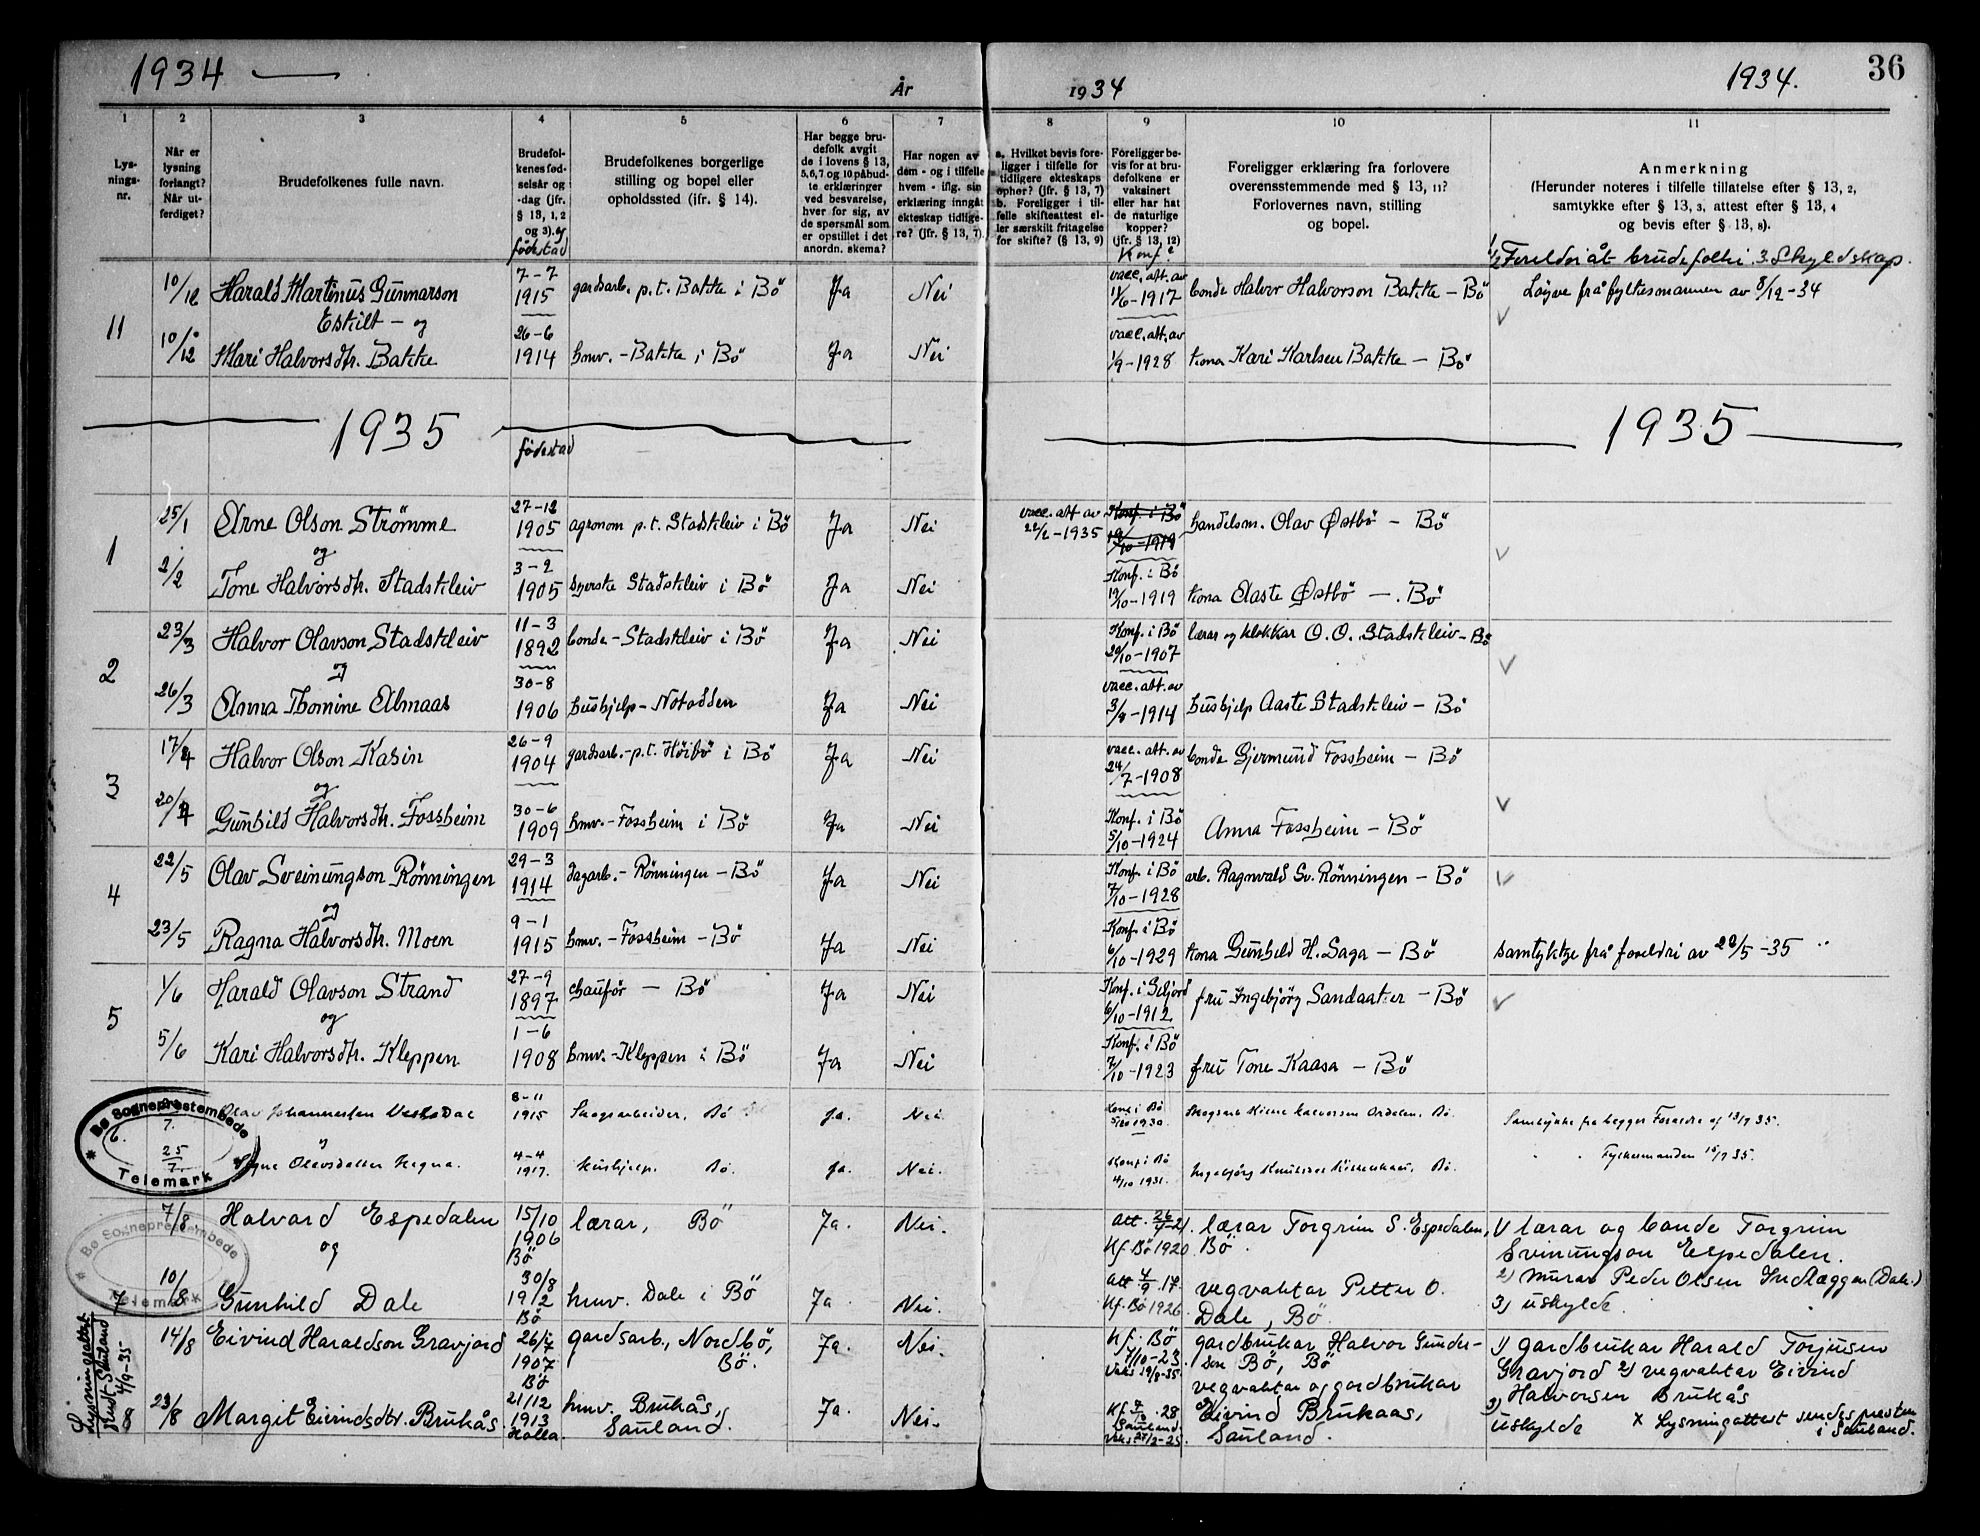 1934 —
År
1934
1934.
36
1
2
3
4
5
6
7
8
9
10
11
Lys-
nings-
nr.
Når er
lysning
forlangt?
Når ut-
ferdiget?
Brudefolkenes fulle navn.
Brudefol-
kenes fød-
selsår og
-dag (jfr.
§ 13, 1, 2
og 3). og
födestad
Brudefolkenes borgerlige
stilling og bopel eller
opholdssted (jfr. § 14).
Har begge bru-
defolk avgit
de i lovens § 13,
5, 6, 7 og 10 påbud-
te erklæringer
ved besvarelse,
hver for sig, av
de spørsmål som
er opstillet i det
anordn. skema?
Har nogen av
dem - og i tilfelle
hvem - iflg. sin
erklæring inngått
ekteskap tidlige-
re? (jfr. § 13, 7).
a. Hvilket bevis fore-
ligger i tilfelle for
tidligere ekteskaps
ophør? (jfr. § 13, 7)
b. Foreligger i til-
felle skifteattest el-
ler særskilt fritagelse
for skifte? (§ 13, 9)
Foreligger be-
vis for at bru-
defolkene er
vaksinert
eller har hat
de naturlige
kopper?
(jfr. § 13, 12)
Konf.
Foreligger erklæring fra forlovere
overensstemmende med § 13, 11?
Forlovernes navn, stilling
og bopel.
Anmerkning
(Herunder noteres i tilfelle tillatelse efter § 13, 2,
samtykke efter § 13, 3, attest efter § 13, 4
og bevis efter § 13, 8).
1/2 Foreldri åt brudefolki 3. Skyldskap.
11 10/12 Harald Martinus Gunnarson 7-7 1915 gardsarb. p.t. Bakke i Bö Ja Nei vacc. att. av 11/6-1917 bonde Halvor Halvorson Bakke - Bö Löyve frå fylkesmannen av 8/12-34
Eskilt - og
10/12 Mari Halvorsdtr. Bakke 26-6 1914 hmv. - Bakke i Bö Ja Nei vacc. att. av 1/9-1928 kona Kari Karlsen Bakke - Bö
1935 födestad 1935
1 25/1 Arne Olson Strömme 27-12 1905 agronom p.t. Stadskleiv i Bö Ja Nei vacc. att av 22/2-1935 Konf. i Bö 19/10-1919 handelsm. Olav Østbö - Bö
og
2/2 Tone Halvorsdtr. Stadskleiv 3-2 1905 syerske Stadskleiv i Bö Ja Nei Konf. i Bö 19/10-1919 kona Aaste Østbö - Bö
2 23/3 Halvor Olavson Stadskleiv 11-3 1892 bonde - Stadskleiv i Bö Ja Nei Konf. i Bö 20/10-1907 lærar og klokkar O. O. Stadskleiv - Bö
og
26/3 Anna Thomine Almaas 30-8 1906 hushjelp - Notodden Ja Nei vacc. att. av 3/8-1914 hushjelp Aaste Stadskleiv - Bö
3 17/4 Halvor Olson Kasin 26-9 1904 gardsarb. - p.t. Höibö i Bö Ja Nei vacc. att. av 24/7-1908 bonde Gjermund Fossheim - Bö
og
20/4 Gunhild Halvorsdtr. Fossheim 30-6 1909 hmv. - Fossheim i Bö Ja Nei Konf. i Bö 5/10-1924 Anna Fossheim - Bö
4 22/5 Olav Sveinungson Rönningen 29-3 1914 dagarb. - Rönningen - Bö Ja Nei Konf. i Bö 7/10-1928 arb. Ragnvald Sv. Rönningen - Bö
og
23/5 Ragna Halvorsdtr. Moen 9-1 1915 hmv. - Fossheim - Bö Ja Nei Konf. i Bö 6/10-1929 kona Gunhild H. Saga - Bö samtykkje frå foreldri av 22/5-35
5 1/6 Harald Olavson Strand 27-9 1897 chauför - Bö Ja Nei Konf. i Seljord 6/10-1912 fru Ingebjörg Sandaaker - Bö
og
5/6 Kari Halvorsdtr. Kleppen 1-6 1908 hmv. - Kleppen i Bö Ja Nei Konf. i Bö 7/10-1923 fru Tone Kaasa - Bö
Bø Sogneprestembede
Telemark
6. Olav Johannessen 8-11 1915 Skogsarbeider, Bö Ja. Nei. Konf i Bö 1930. Samtykke fra begges Foreldre
25/7 Signe Olavsdatter Hegna. 4-4 1917. Hushjelp. Bö. Ja. Nei. Konf i Bö 4/10 1931. Ingebjörg Bö. Fylkesmanden
Bø Sogneprestembede
Telemark
7 7/8. Halvard Espedalen 15/10 1906 Bö lærar, Bö Ja. Nei. Att. Kf. Bö 1920. lærar Torgrim S. Espedalen, Bö. 1) lærar og bonde Torgrim
og Svinungson Espedalen.
2) murar Peder Olsen Indlæggen (Dale.)
10/8 Gunhild Dale 30/8 1912 Bö hmv. Dale i Bö Ja. Nei. Att. 4/9.17. Kf. Bö 1926. vegvaktar Petter O. Dale, Bö. 3) uskylde.
14/8 Eivind Haraldson Gravjord 26/7 1907 Bö gardsarb., Nordbö, Bö. Ja. Nei. Kf. Bö 7/10-23. Vaks 19/8-35. gardbrukar Halvor Gunder-
sen Bö, Bö 1) gardbrukar Harald Torjusen
Gravjord 2) vegvaktar Eivind
Halvorsen Brukås
23/8 Margit Eivindsdtr. Brukås 21/12 1913 Holla. hmv. Brukås, Sauland. Ja. Nei. Kf. 28 Sauland vegvaktar og gardbrukar
Eivind Brukaas,
Sauland. 3) Uskylde x Lysningattest sendes presten
i Sauland.
Lysningsattest
sendt Sauland
4/9-35